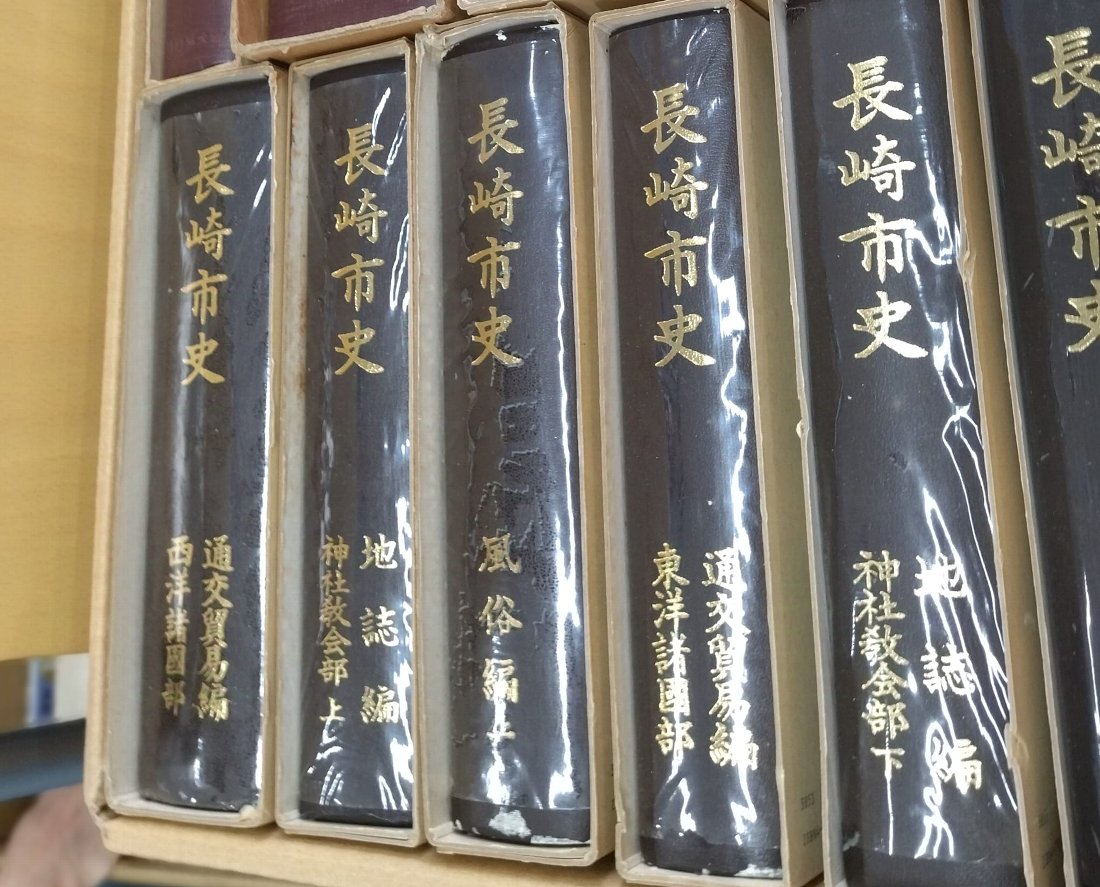 長崎市史
通交貿易編
西洋諸國部
長崎市史
地誌編
神社教会部 上
長崎市史
風俗編 上
長崎市史
通交貿易編
東洋諸國部
長崎市史
地誌編
神社教会部 下
長崎市史